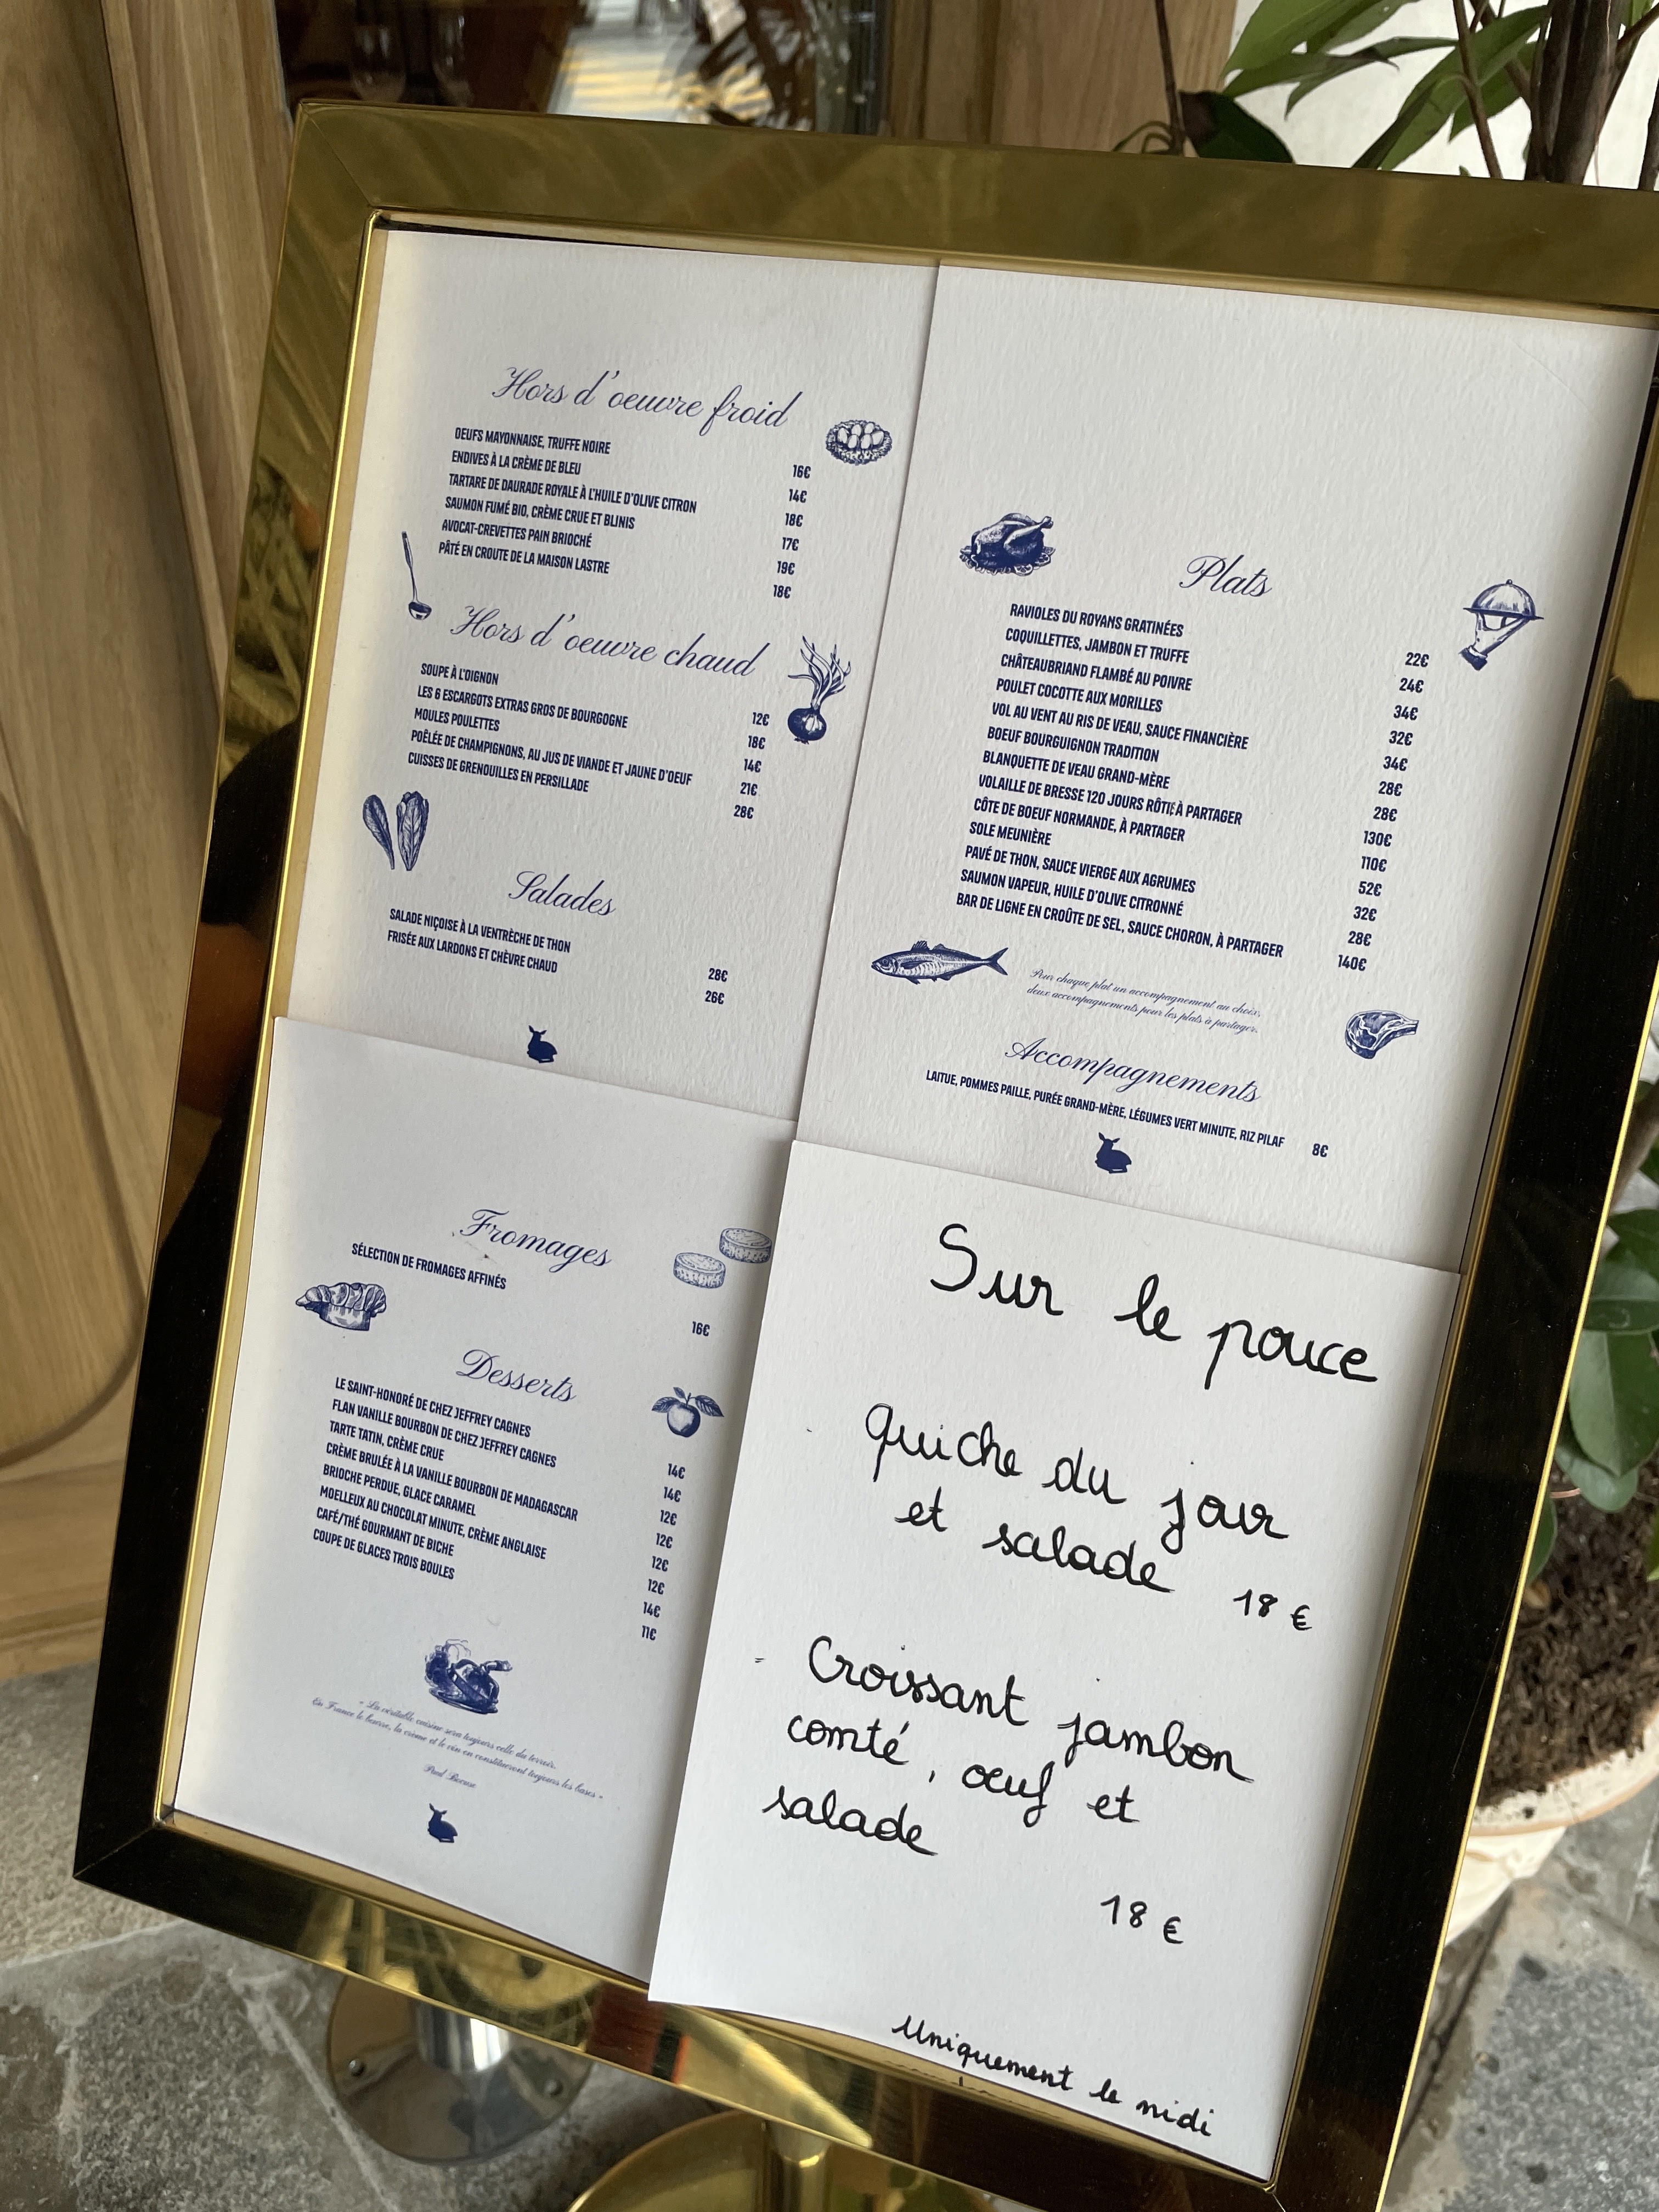 Hors d'oeuvre froid
OEUFS MAYONNAISE, TRUFFE NOIRE 16€
ENDIVES À LA CRÈME DE BLEU 14€
TARTARE DE DAURADE ROYALE À L'HUILE D'OLIVE CITRON 18€
SAUMON FUMÉ BIO, CRÈME CRUE ET BLINIS 17€
AVOCAT-CREVETTES PAIN BRIOCHÉ 19€
PÂTÉ EN CROUTE DE LA MAISON LASTRE 18€
Hors d'oeuvre chaud
SOUPE À L'OIGNON 12€
LES 6 ESCARGOTS EXTRAS GROS DE BOURGOGNE 18€
MOULES POULETTES 14€
POÊLÉE DE CHAMPIGNONS, AU JUS DE VIANDE ET JAUNE D'OEUF 21€
CUISSES DE GRENOUILLES EN PERSILLADE 28€
Salades
SALADE NIÇOISE À LA VENTRÈCHE DE THON 28€
FRISÉE AUX LARDONS ET CHÈVRE CHAUD 26€
Plats
RAVIOLES DU ROYANS GRATINÉES 22€
COQUILLETTES, JAMBON ET TRUFFE 24€
CHÂTEAUBRIAND FLAMBÉ AU POIVRE 34€
POULET COCOTTE AUX MORILLES 32€
VOL AU VENT AU RIS DE VEAU, SAUCE FINANCIÈRE 34€
BOEUF BOURGUIGNON TRADITION 28€
BLANQUETTE DE VEAU GRAND-MÈRE 28€
VOLAILLE DE BRESSE 120 JOURS RÔTIE À PARTAGER 130€
CÔTE DE BOEUF NORMANDE, À PARTAGER 110€
SOLE MEUNIÈRE 52€
PAVÉ DE THON, SAUCE VIERGE AUX AGRUMES 32€
SAUMON VAPEUR, HUILE D'OLIVE CITRONNÉ 28€
BAR DE LIGNE EN CROÛTE DE SEL, SAUCE CHORON, À PARTAGER 140€
Pour chaque plat un accompagnement au choix,
deux accompagnements pour les plats à partager.
Accompagnements
LAITUE, POMMES PAILLE, PURÉE GRAND-MÈRE, LÉGUMES VERT MINUTE, RIZ PILAF 8€
Fromages
SÉLECTION DE FROMAGES AFFINÉS 16€
Desserts
LE SAINT-HONORÉ DE CHEZ JEFFREY CAGNES 14€
FLAN VANILLE BOURBON DE CHEZ JEFFREY CAGNES 14€
TARTE TATIN, CRÈME CRUE 12€
CRÈME BRULÉE À LA VANILLE BOURBON DE MADAGASCAR 12€
BRIOCHE PERDUE, GLACE CARAMEL 12€
MOELLEUX AU CHOCOLAT MINUTE, CRÈME ANGLAISE 12€
CAFÉ/THÉ GOURMANT DE BICHE 14€
COUPE DE GLACES TROIS BOULES 11€
" La véritable cuisine sera toujours celle du terroir.
En France le beurre, la crème et le vin en constitueront toujours les bases "
Paul Bocuse
Sur le pouce
quiche du jour
et salade 18 €
Croissant jambon
comté, oeuf et
salade
18 €
Uniquement le midi